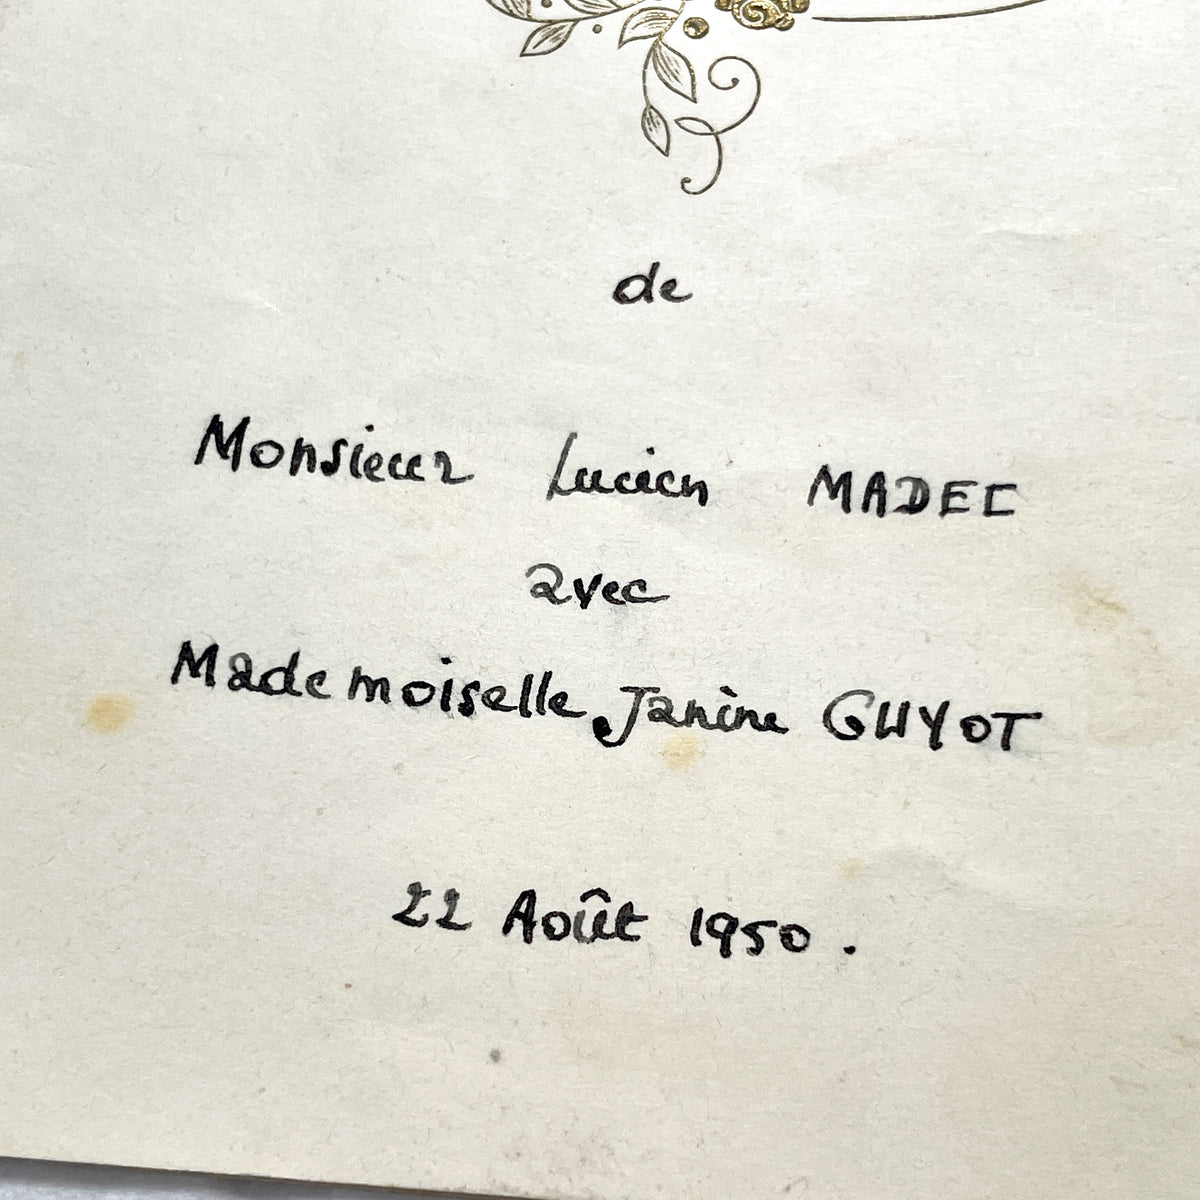 de
Monsieur Lucien MADEC
avec
Mademoiselle Janine GUYOT
22 Août 1950.